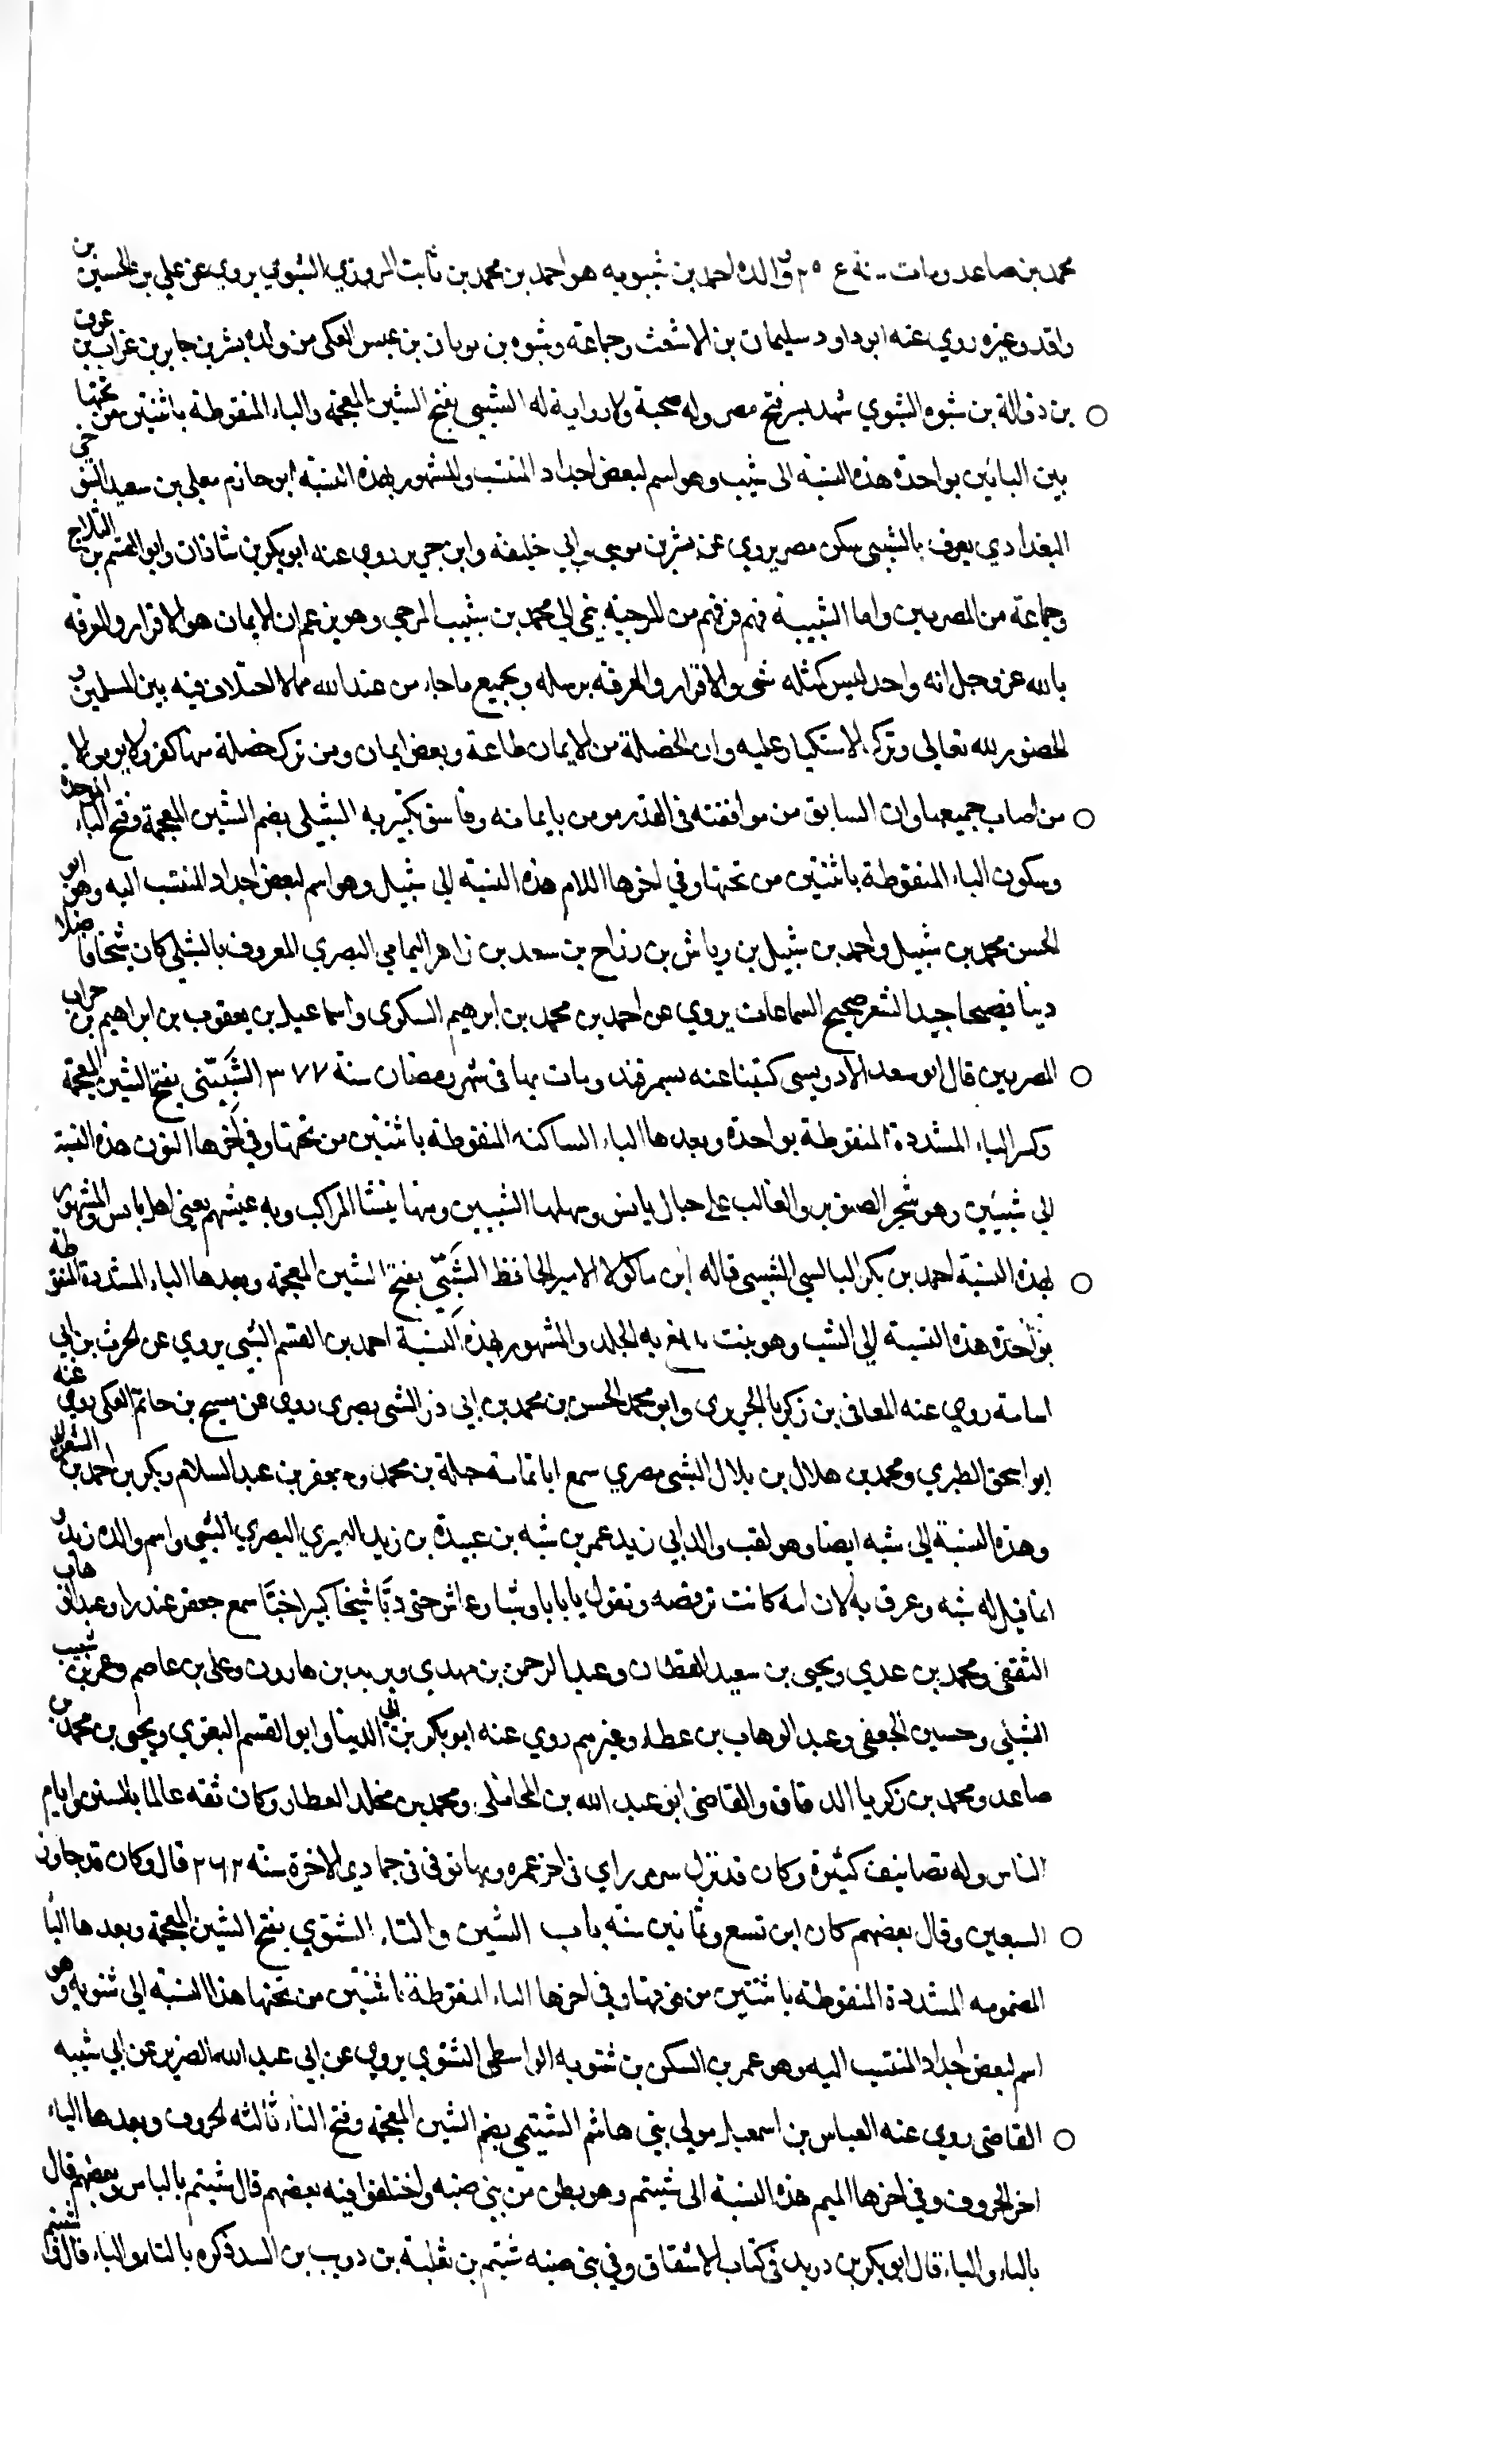 محمد بن صاعد ومات سنة ع ٢٥ ووالده احمد بن شبويه هو احمد بن محمد بن ثابت المروزي الشبوي يروي عن علي بن الحسين بن
واقد وغيره روي عنه ابو داود سليمان بن الاشعث وجماعة وشبوه بن ثوبان بن عبس العكى من ولده بشر بن جابر بن عراب بن عوف
بن ذوالة بن شبوه الشبوي شهد بسر فتح مصر وله صحبة ولا رواية له الشبيبي بفتح الشين المعجمة والباء المنقوطة باثنتين من تحتها
بين البائين بواحدة هذه النسبة الى شبيب وهو اسم لبعض اجداد المنتسب والمشهور بهذه النسبة ابو حازم معلي بن سعيد
البغدادي يعرف بالشبيبى سكن مصر يروي عن بشر بن موسي وابي خليفة وابن جرير روي عنه ابو بكر بن شاذان وابو القسم بن الثلاج
وجماعة من المصريين واما الشبيبية فهم فرقهم من المرجية ينتمى الي محمد بن شبيب المرجي وهو يزعم ان الايمان هو الاقرار والمعرفة
بالله عز وجل انه واحد ليس كمثله شي والاقرار والمعرفة برسله وبجميع ما جاء من عند الله مما لا اختلاف فيه بين المسلمين و
الخضوع لله تعالي وترك الاستكبار عليه وان الخصلة من الايمان طاعة وبعض ايمان ومن ترك خصلة منها كفر ولا يومن الا
من اصاب جميعها وان السابق من موافقته في القدر مومن بايمانه وفاسق بكبيرة الشبيلي بضم الشين المعجمة وفتح الباء الموحدة
وسكون الياء المنقوطة باثنتين من تحتها وفي اخرها اللام هذه النسبة الي شبيل وهو اسم لبعض اجداد المنتسب اليه وهو ابو
الحسن محمد بن شبيل واحمد بن شبيل بن رياش بن رزاح بن سعد بن زاهر اليمامي البصري المعروف بالشبيلي كان شيخا فاضلا
دينا فصيحا جيد الشعر صحيح السماعات يروي عن احمد بن محمد بن ابرهيم السكرى واسماعيل بن يعقوب بن ابراهيم بن حراب
المصريين قال ابو سعد الادريسى كتبنا عنه بسمرقند ومات بها في شهر رمضان سنة ٣٧٧ الشَبِّيني بفتح الشين المعجمة
وكسر الباء المشددة المنقوطة بواحدة وبعدها الياء الساكنة المنقوطة باثنتين من تحتها وفي اخرها النون هذه النسبة
الي شبيين وهو شجر الصنوبر والغالب علي جبال بانس وسهلها الشبيين ومنها ينشا المراكب وبه عيشهم يعنى اهل بانس والمشهور
بهذه النسبة احمد بن بكر البالسي الشبيني قاله ابن ماكولا الامير الحافظ الشَبِّيّ بفتح الشين المعجمة وبعدها الباء المشددة المنقوطة
بواحدة هذه النسبة الي الشب وهو نبت يدبغ به الجلد والمشهور بهذه النسبة احمد بن القسم الشبي يروي عن الحرث بن ابي
اسامة روي عنه المعافي بن زكريا الجريرى وابو محمد الحسن بن محمد بن ابي ذر الشبى بصرى روي عن مسبح بن حاتم العكى روي عنه
ابو اسحق الطبري ومحمد بن هلال بن بلال الشبى مصري سمع ابا قمامة جبلة بن محمد وجعفر بن عبد السلام وبكر بن احمد بن الشعراني
وهذه النسبة الي شبه ايضا وهو لقب والد ابي زيد عمر بن شبه بن عبيدة بن زيد النميري البصري الشبي واسم والده زيد و
انما قيل له شبه وعرف به لان امه كانت ترقصه وتقول يا بابا وشبا وعاش حتى دبا شيخا كبيرا خبا سمع جعفر غندرا وعبد الوهاب
الثقفي ومحمد بن عدي ويحيى بن سعيد القطان وعبد الرحمن بن مهدي ويزيد بن هارون وعلي بن عاصم وعمر بن شبيب
الشبلي وحسين الجعفى وعبد الوهاب بن عطاء وغيرهم روي عنه ابو بكر بن ابي الدنيا وابو القسم البغوي ويحيى بن محمد بن
صاعد ومحمد بن زكريا الدقاق والقاضي ابو عبد الله بن المحاملي ومحمد بن مخلد العطار وكان ثقه عالما بالسنن وايام
الناس وله تصانيف كثيرة وكان قد نزل سر من راي في اخر عمره وبها توفي في جمادي الاخرة سنة ٢٦٢ قال وكان قد جاوز
السبعين وقال بعضهم كان ابن تسع وثمانين سنة باب الشين والتاء الشتوي بفتح الشين المعجمة وبعدها التا
المضمومه المشددة المنقوطة باثنتين من فوقها وفي اخرها الياء المنقوطة باثنتين من تحتها هذه النسبة الي شتويه وهو
اسم لبعض اجداد المنتسب اليه وهو عمر بن السكن بن شتويه الواسطي الشتوي يروي عن ابي عبد الله الضرير عن ابي شيبه
القاضى روي عنه العباس بن اسمعيل مولي بني هاشم الشتيمي بضم الشين المعجمة وفتح التاء ثالثه الحروف وبعدها الياء
اخر الحروف وفي اخرها الميم هذه النسبة الى شتيم وهو بطن من بني ضبه واختلفوا فيه بعضهم قال شييم بالياين وبعضهم قال
بالتاء والياء قال ابو بكر بن دريد في كتاب الاشقاق وفي بني ضبه شتيم بن ثعلبة بن دويب بن السيد ذكره بالتاء والياء قال